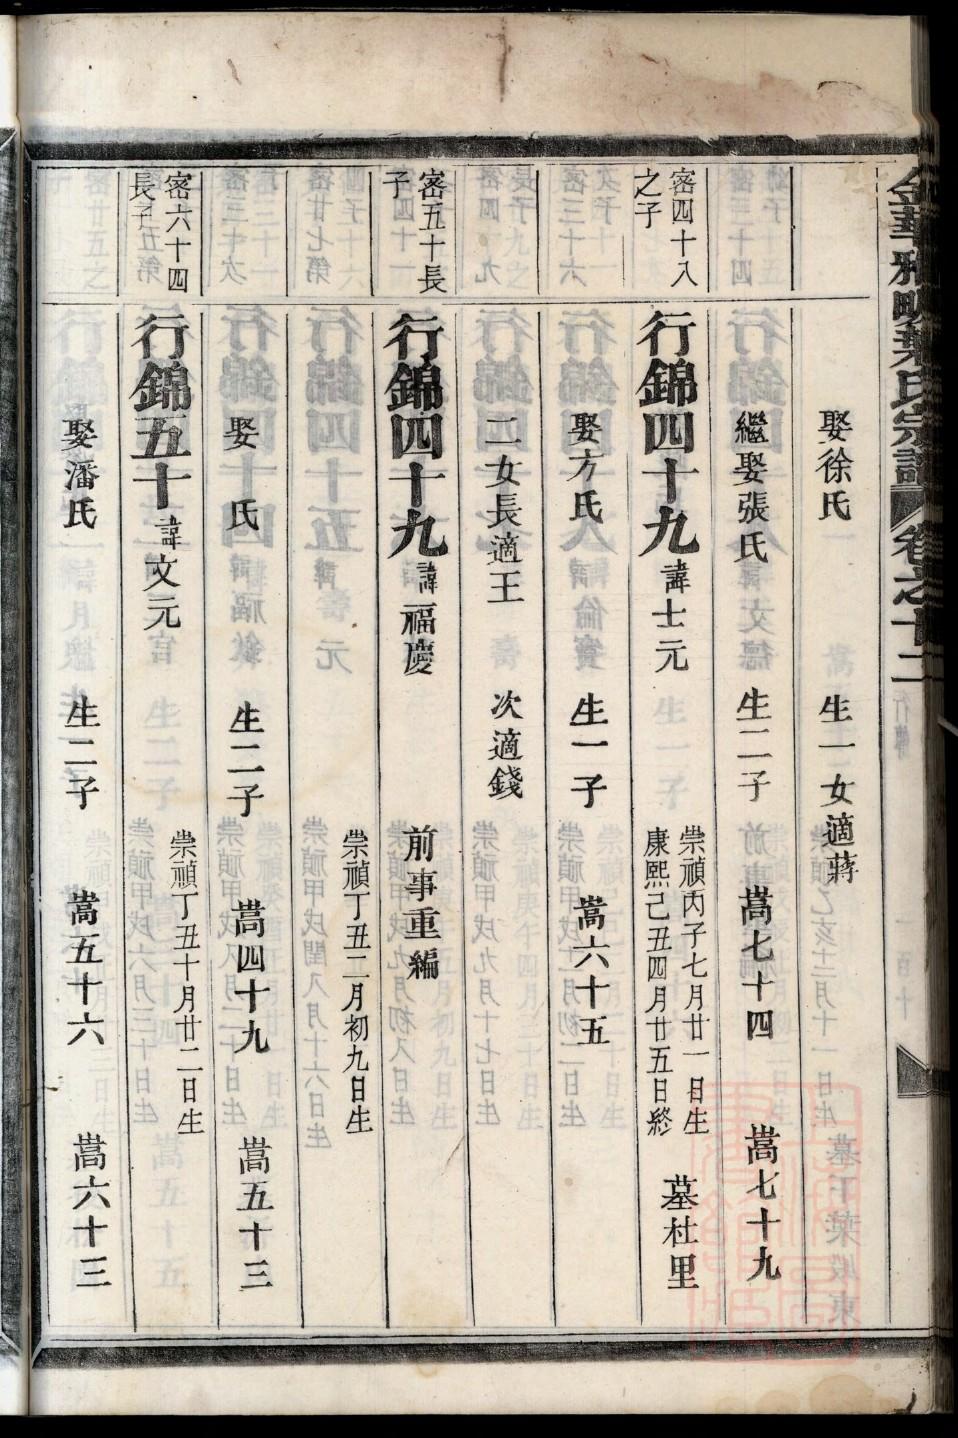 金華雅畈葉氏宗譜 卷之十二 行傳 一百十
娶徐氏 生一女適蔣
繼娶張氏 生二子 嵩七十四 嵩七十九
密四十八之子
行錦四十九 諱士元 崇禎丙子七月廿一日生 康熙己丑四月廿五日終 墓杜里
娶方氏 生一子 嵩六十五
二女長適王 次適錢
密五十長子
行錦四十九 諱福慶 前事重編
崇禎丁丑二月初九日生
娶 氏 生二子 嵩四十九 嵩五十三
密六十四長子
行錦五十 諱文元 崇禎丁丑十月廿二日生
娶潘氏 生二子 嵩五十六 嵩六十三